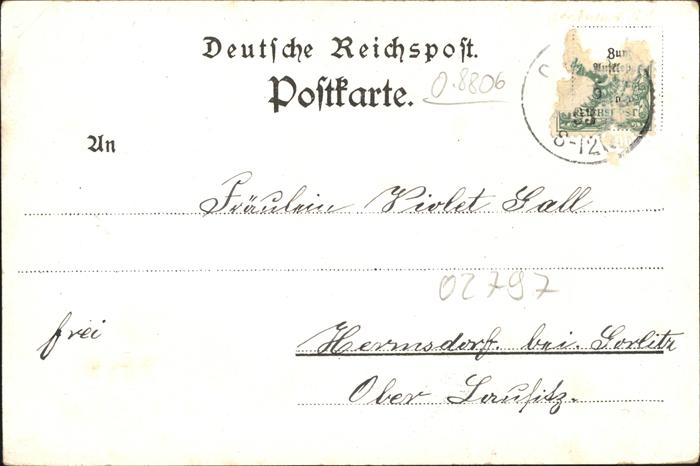 Deutsche Reichspost.
Postkarte.
0.8806
Zum
Aufkleb
REICHSPOST
8-12
An
Fräulein Violet Gall
02797
frei
Hermsdorf. bei. Gorlitz
Ober Lausitz.